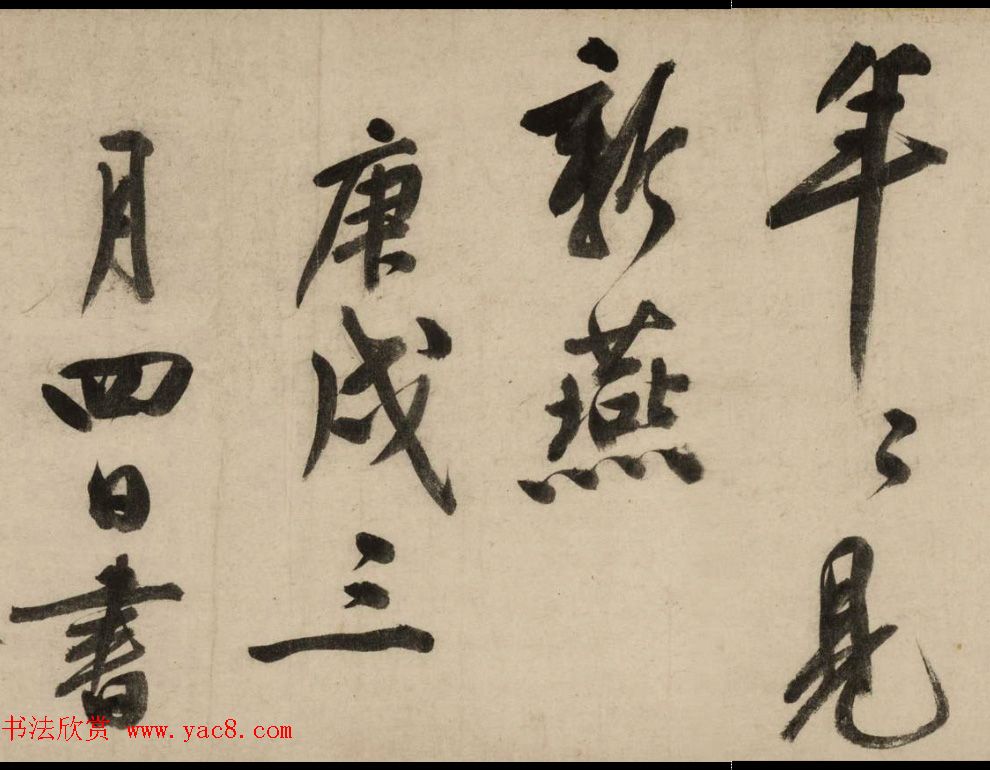 年〻見
新燕
庚戌三
月四日書
书法欣赏 www.yac8.com